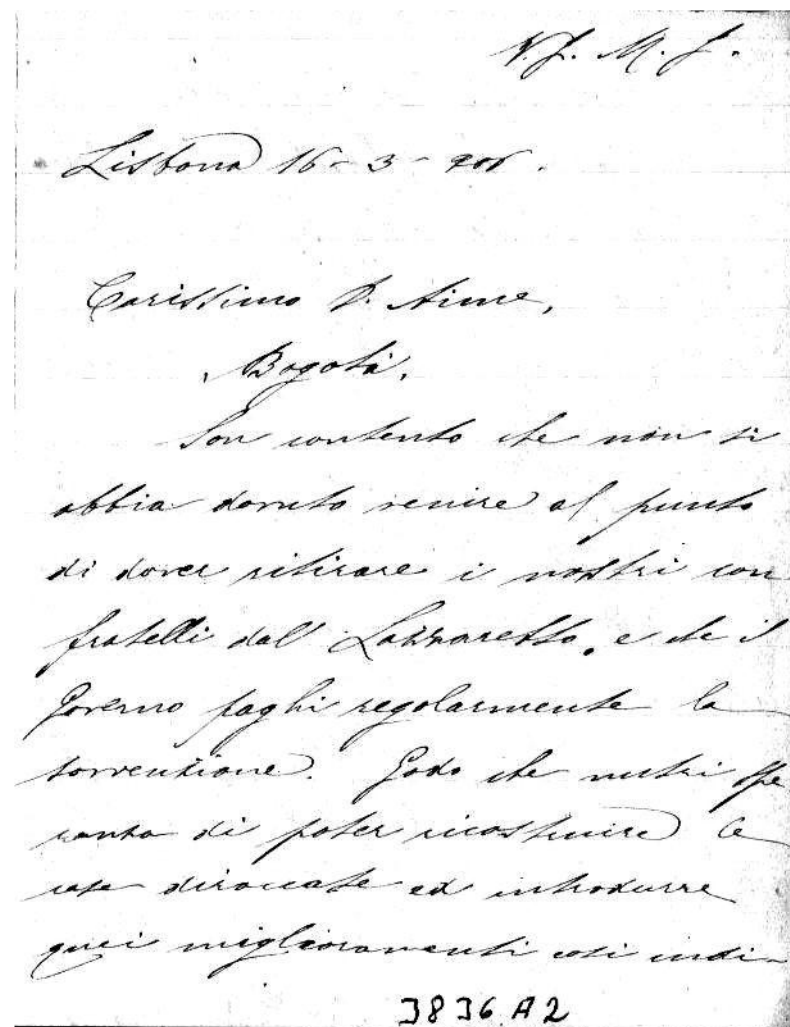 V. J. M. J.
Lisbona 16 - 3 - 906.
Carissimo D. Aime,
Bogotà.
Son contento che non si
abbia dovuto venire al punto
di dover ritirare i nostri con
fratelli dal Lazzaretto, e che il
Governo paghi regolarmente la
sovvenzione. Godo che nutri spe
ranza di poter ricostruire le
case diroccate ed introdurre
quei miglioramenti così indi-
3836 A2